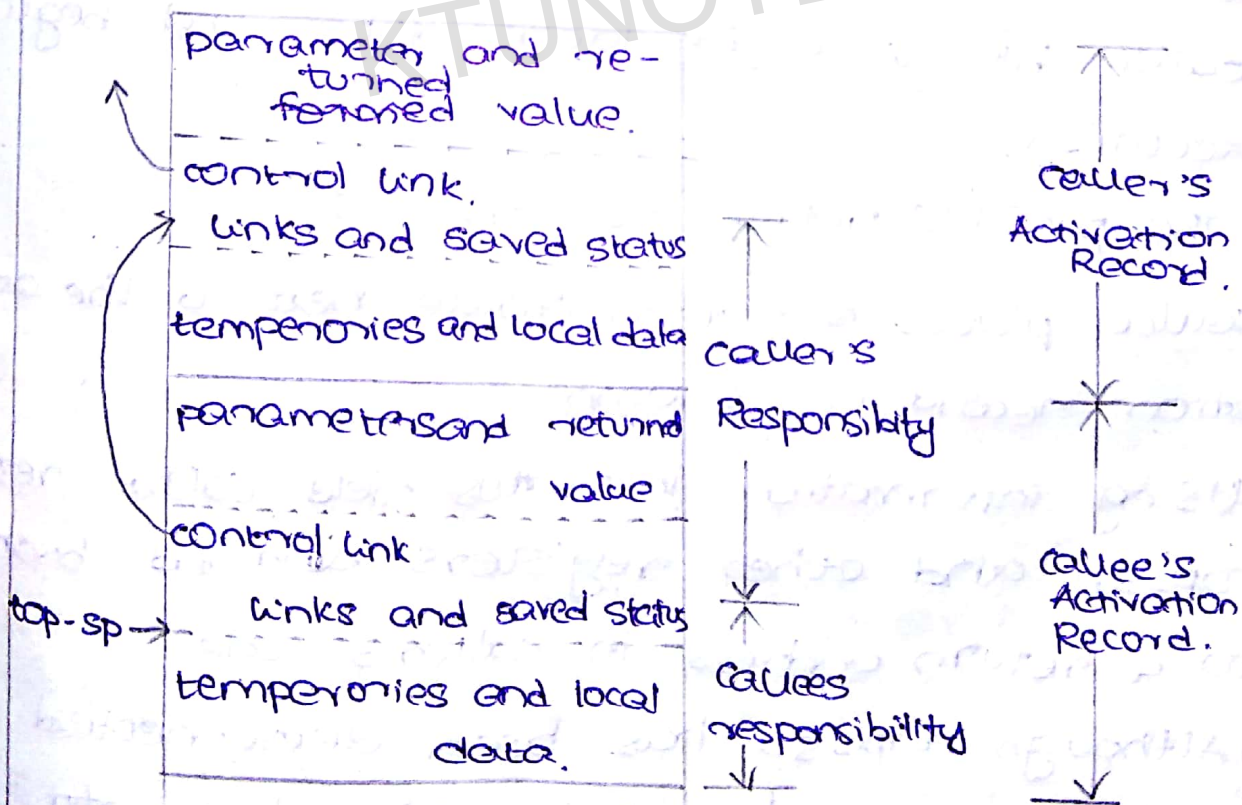 KTUNOTE
parameter and re-
turned
formed value.
control link.
links and saved status
temperories and local data
parametersand returnd
value
control link
top-sp→ links and saved status
temperories and local
data.
caller's
Responsiblity
callees
responsibility
caller's
Activation
Record.
callee's
Activation
Record.